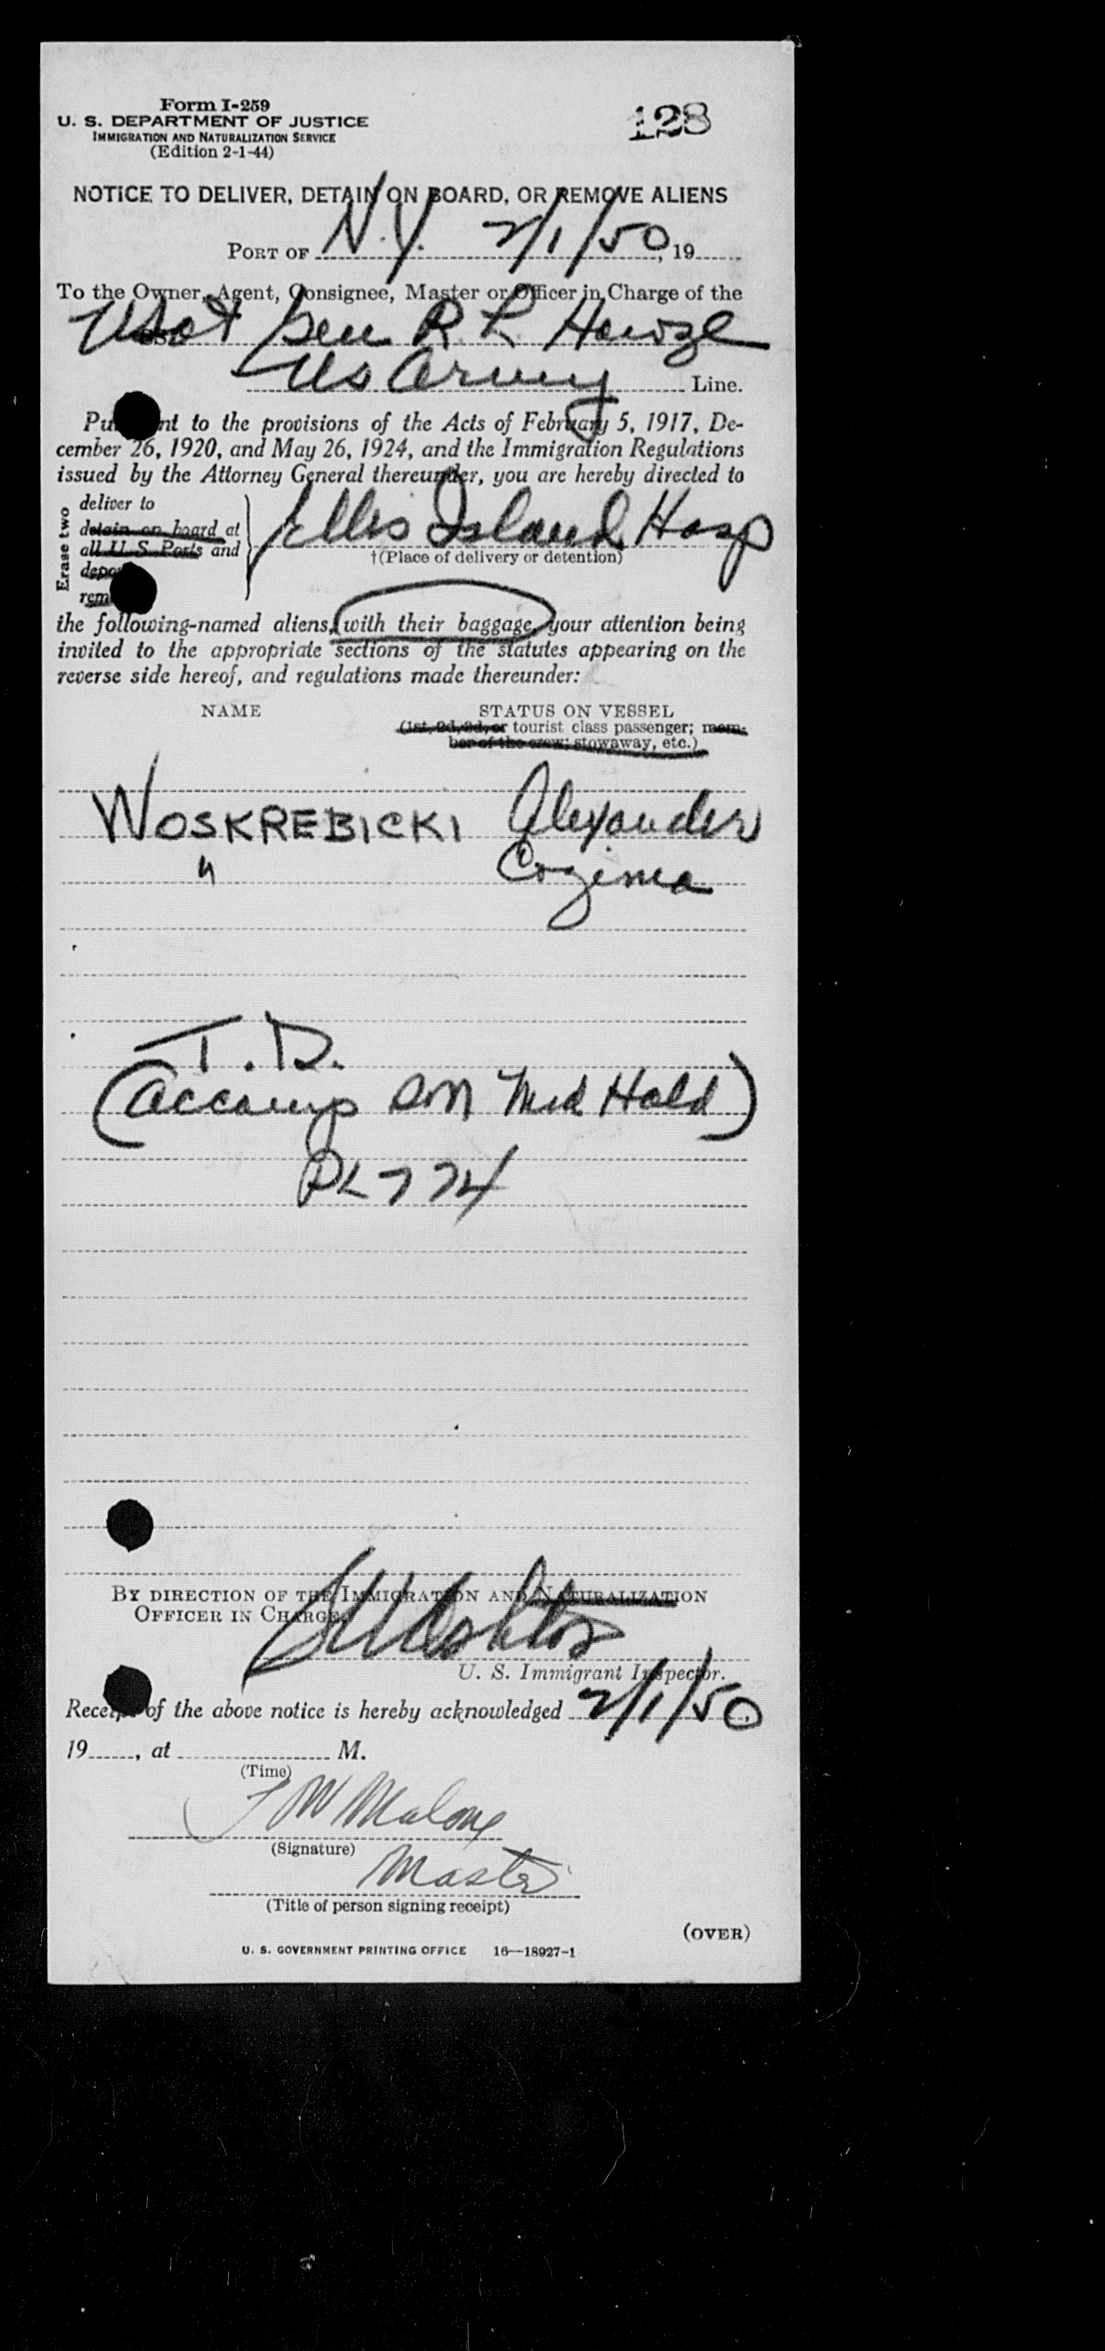 Form I-259
U. S. DEPARTMENT OF JUSTICE
IMMIGRATION AND NATURALIZATION SERVICE
(Edition 2-1-44)
128
NOTICE TO DELIVER, DETAIN ON BOARD, OR REMOVE ALIENS
PORT OF N.Y. 2/1/50, 19
To the Owner, Agent, Consignee, Master or Officer in Charge of the
USAT Gen R. L. Howze
US Army Line.
Pu nt to the provisions of the Acts of February 5, 1917, De-
cember 26, 1920, and May 26, 1924, and the Immigration Regulations
issued by the Attorney General thereunder, you are hereby directed to
Erase two
deliver to
detain on board at
all U. S. Ports and
depo
rem
Ellis Island Hosp
†(Place of delivery or detention)
the following-named aliens, with their baggage, your attention being
invited to the appropriate sections of the statutes appearing on the
reverse side hereof, and regulations made thereunder:
NAME STATUS ON VESSEL
(1st, 2d, 3d, or tourist class passenger; mem-
ber of the crew; stowaway, etc.)
WOSKREBICKI Alexander
" Cozima
T.D.
(accomp son Med Hold)
PL 774
BY DIRECTION OF THE IMMIGRATION AND NATURALIZATION
OFFICER IN CHARGE,
U. S. Immigrant Inspector.
Receipt of the above notice is hereby acknowledged 2/1/50
19, at M.
(Time)
F W Malone
(Signature)
Master
(Title of person signing receipt)
(OVER)
U. S. GOVERNMENT PRINTING OFFICE 16—18927-1